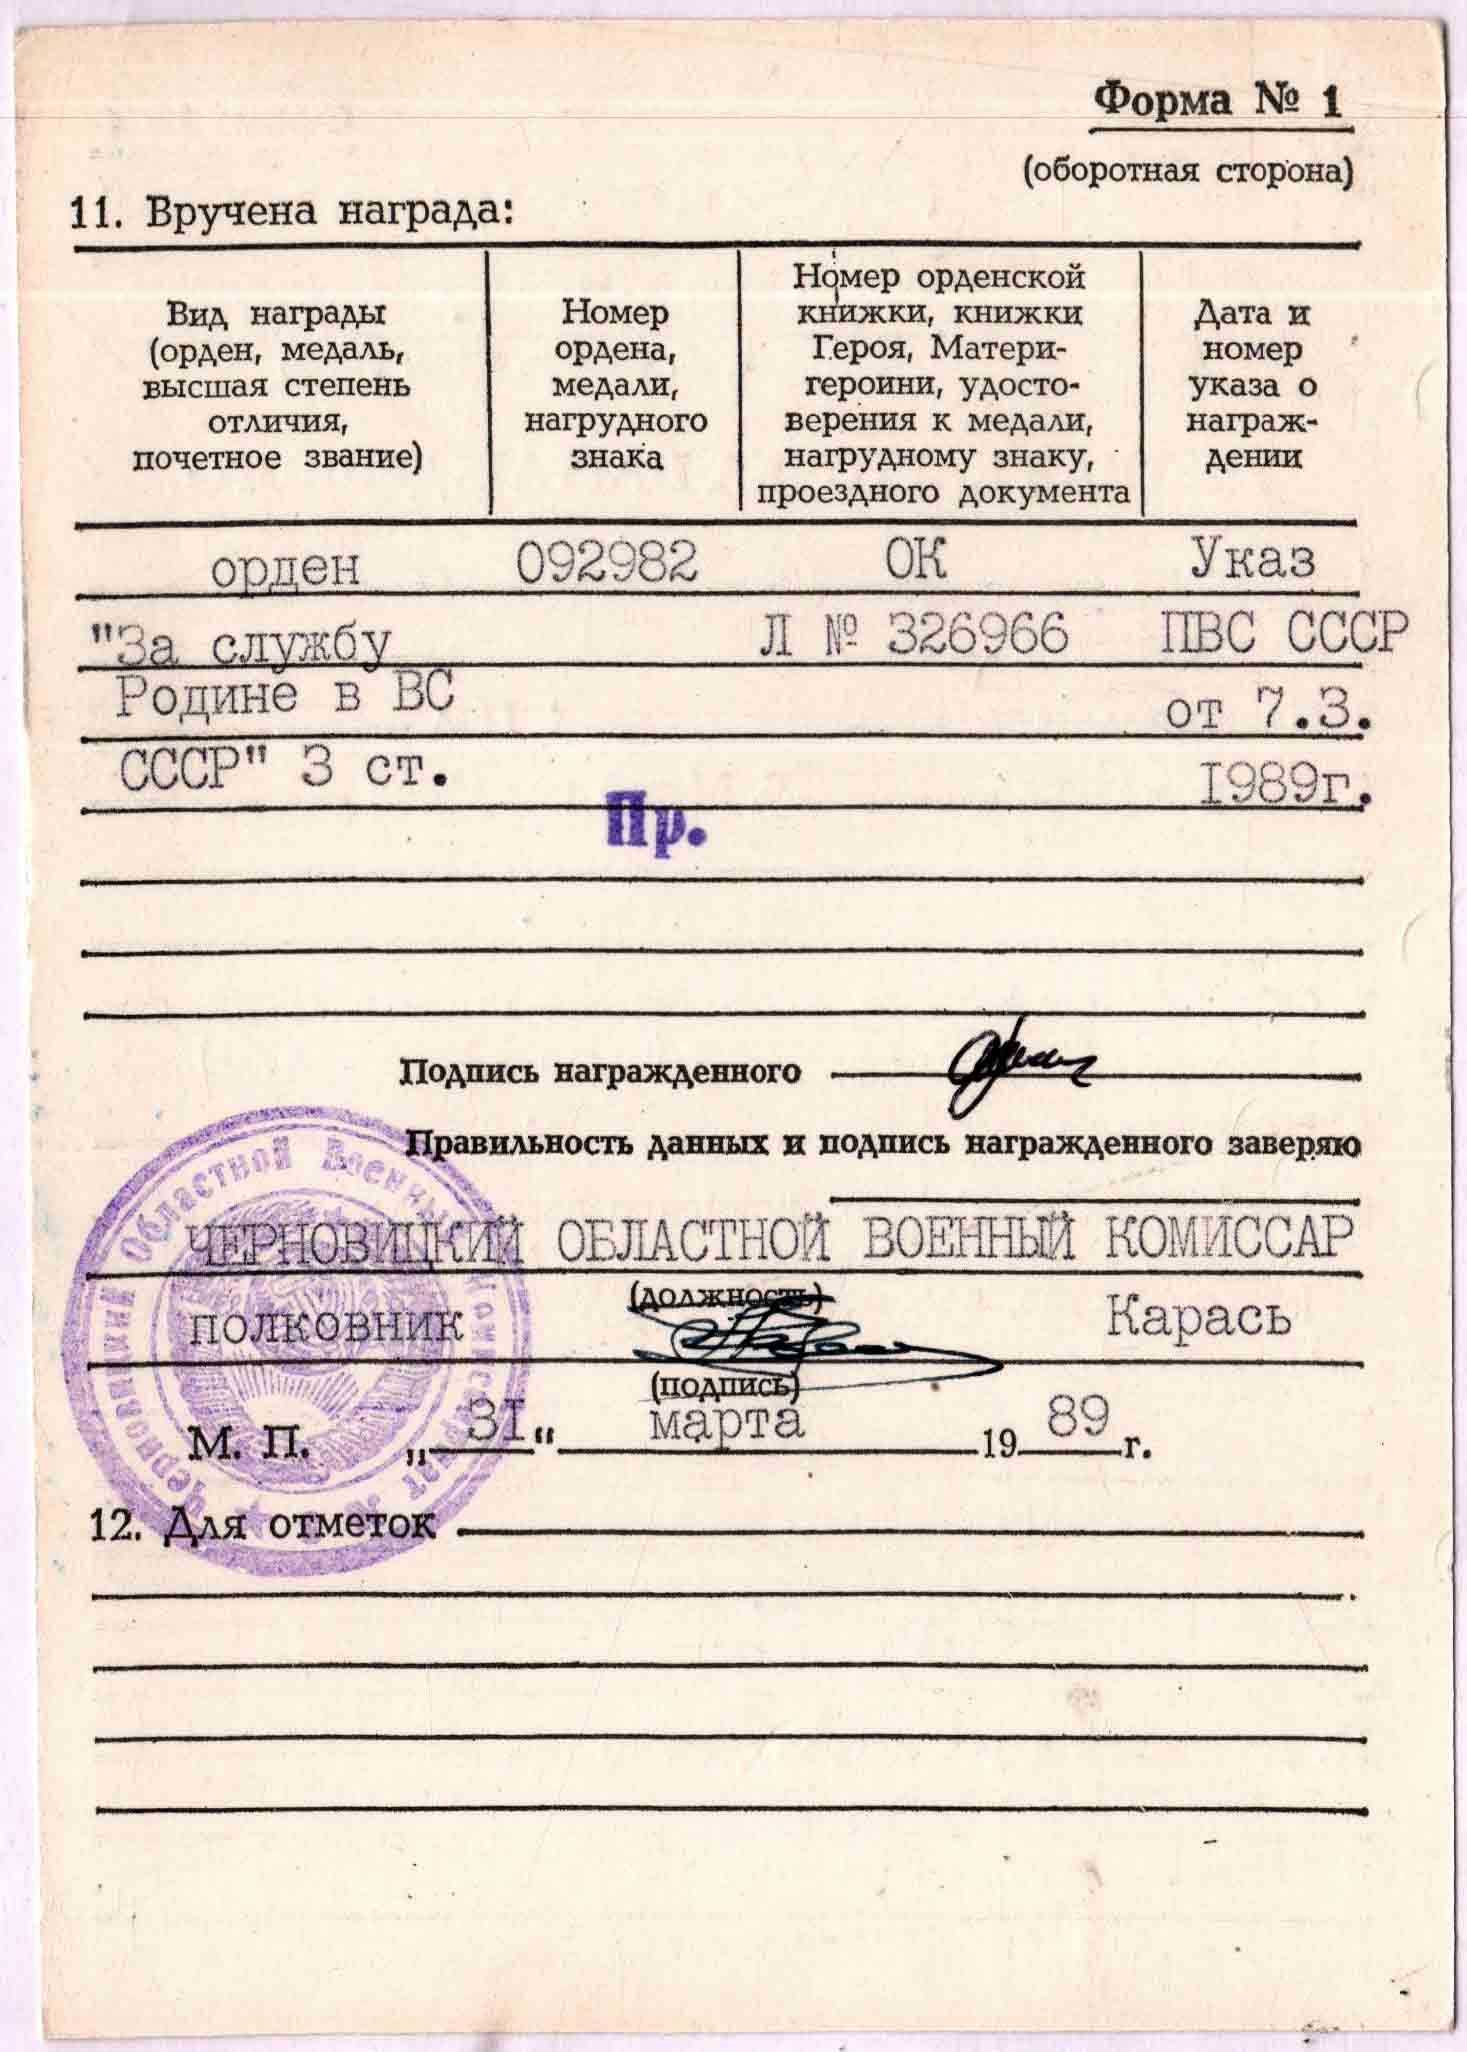 Форма № 1
(оборотная сторона)
11. Вручена награда:
Вид награды
(орден, медаль,
высшая степень
отличия,
почетное звание)
Номер
ордена,
медали,
нагрудного
знака
Номер орденской
книжки, книжки
Героя, Матери-
героини, удосто-
верения к медали,
нагрудному знаку,
проездного документа
Дата и
номер
указа о
награж-
дении
орден 092982 ОК Указ
"За службу Л № 326966 ПВС СССР
Родине в ВС от 7.3.
СССР" 3 ст. I989г.
Пр.
Подпись награжденного
Правильность данных и подпись награжденного заверяю
ЧЕРНОВИЦКИЙ ОБЛАСТНОЙ ВОЕННЫЙ КОМИССАР
(должность)
полковник Карась
(подпись)
М. П. „ 3I “ марта 19 89 г.
Черновицкий Областной Военный Комиссариат
12. Для отметок